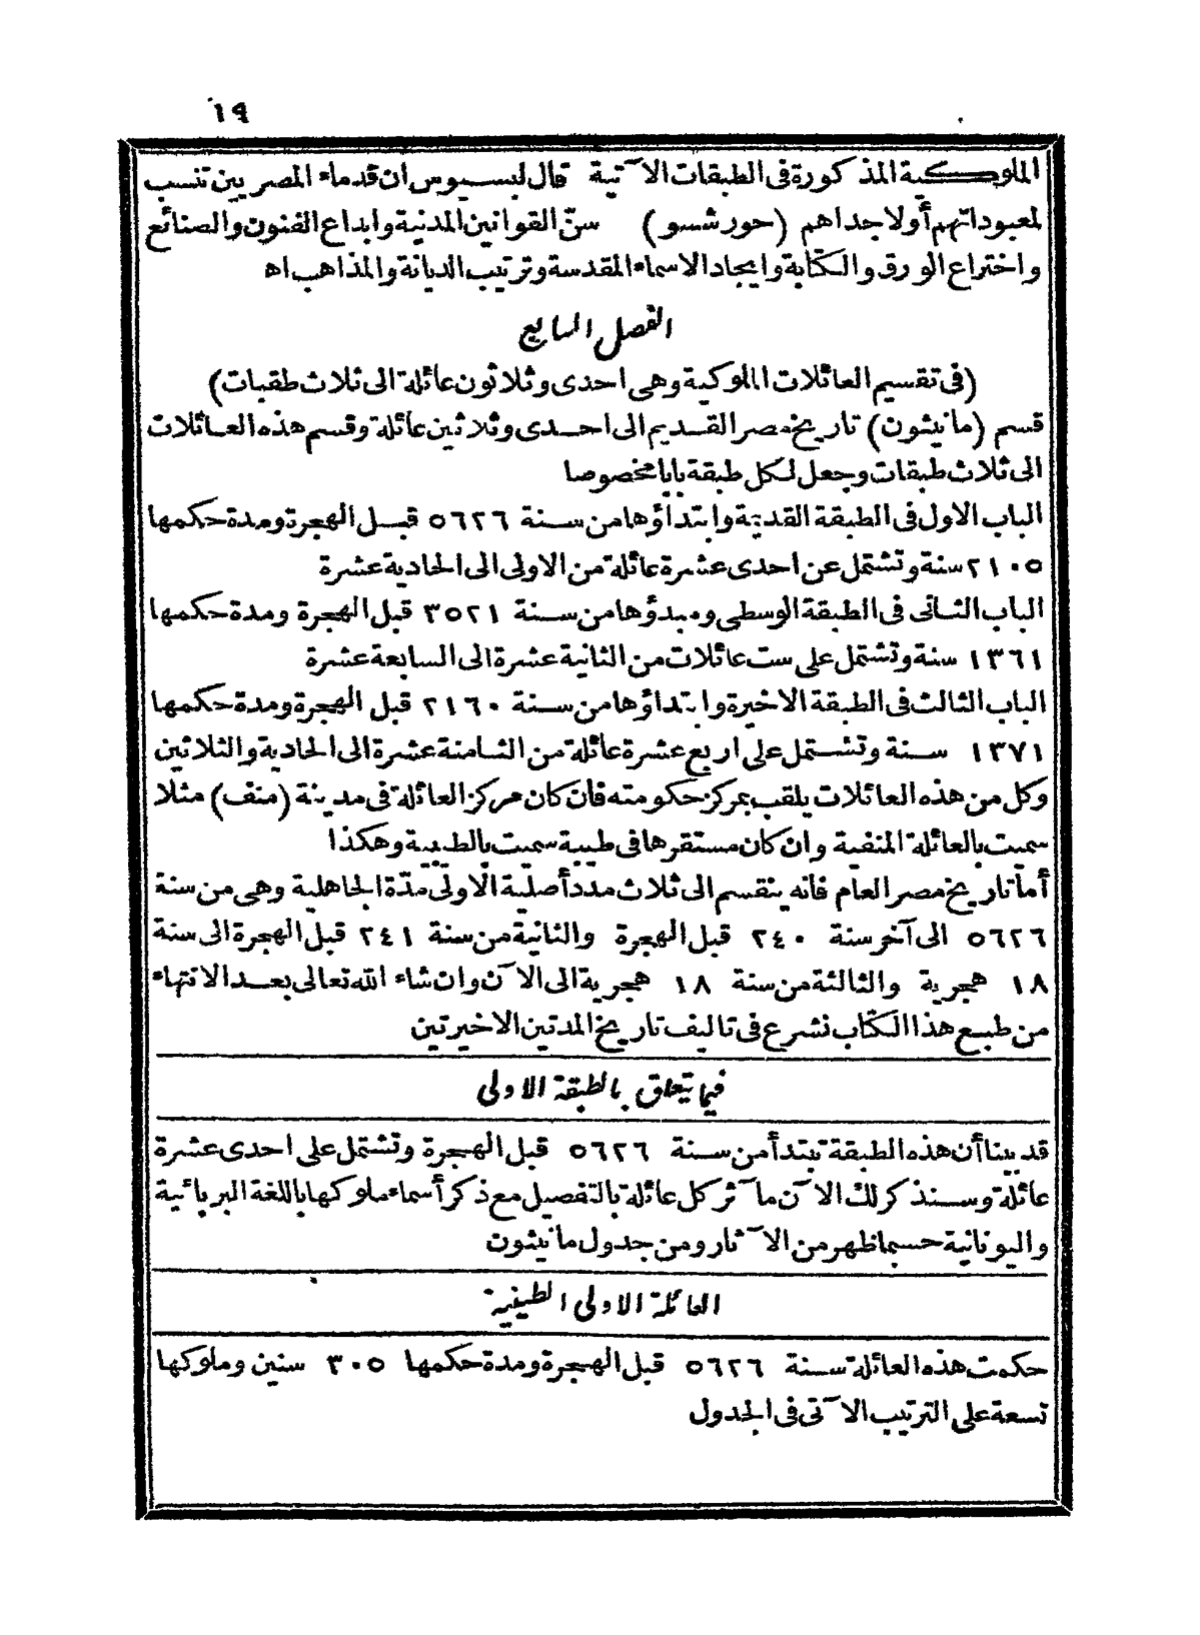 ١٩
الملوكية المذكورة فى الطبقات الآتية قال لبسيوس ان قدماء المصريين تنسب
لمعبوداتهم أولاجداهم (حورشسو) سنّ القوانين المدنية وابداع الفنون والصنائع
واختراع الورق والكتابة وايجاد الاسماء المقدسة وترتيب الديانة والمذاهب اه
الفصل السابع
(فى تقسيم العائلات الملوكية وهى احدى وثلاثون عائلة الى ثلاث طقبات)
قسم (مانيثون) تاريخ مصر القديم الى احدى وثلاثين عائلة وقسم هذه العائلات
الى ثلاث طبقات وجعل لكل طبقة بابا مخصوصا
الباب الاول فى الطبقة القديمة وابتداؤها من سنة ٥٦٢٦ قبل الهجرة ومدة حكمها
٢١٠٥ سنة وتشتمل عن احدى عشرة عائلة من الاولى الى الحادية عشرة
الباب الثانى فى الطبقة الوسطى ومبدؤها من سنة ٣٥٢١ قبل الهجرة ومدة حكمها
١٣٦١ سنة وتشتمل على ست عائلات من الثانية عشرة الى السابعة عشرة
الباب الثالث فى الطبقة الاخيرة وابتداؤها من سنة ٢١٦٠ قبل الهجرة ومدة حكمها
١٣٧١ سنة وتشتمل على اربع عشرة عائلة من الثامنة عشرة الى الحادية والثلاثين
وكل من هذه العائلات يلقب بمركز حكومته فان كان مركز العائلة فى مدينة (منف) مثلا
سميت بالعائلة المنفية وان كان مستقرها فى طيبة سميت بالطيبية وهكذا
أما تاريخ مصر العام فانه ينقسم الى ثلاث مدد أصلية الاولى مدّة الجاهلية وهى من سنة
٥٦٢٦ الى آخر سنة ٢٤٠ قبل الهجرة والثانية من سنة ٢٤١ قبل الهجرة الى سنة
١٨ هجرية والثالثة من سنة ١٨ هجرية الى الآن وان شاء الله تعالى بعد الانتهاء
من طبع هذا الكتاب نشرع فى تاليف تاريخ المدتين الاخيرتين
فيما يتعلق بالطبقة الاولى
قد بينا أن هذه الطبقة تبتدأ من سنة ٥٦٢٦ قبل الهجرة وتشتمل على احدى عشرة
عائلة وسنذكر لك الآن مآثر كل عائلة بالتفصيل مع ذكر أسماء ملوكها باللغة البربائية
واليونانية حسبما ظهر من الآثار ومن جدول مانيثون
العائلة الاولى الطينية
حكمت هذه العائلة سنة ٥٦٢٦ قبل الهجرة ومدة حكمها ٣٠٥ سنين وملوكها
تسعة على الترتيب الآتى فى الجدول